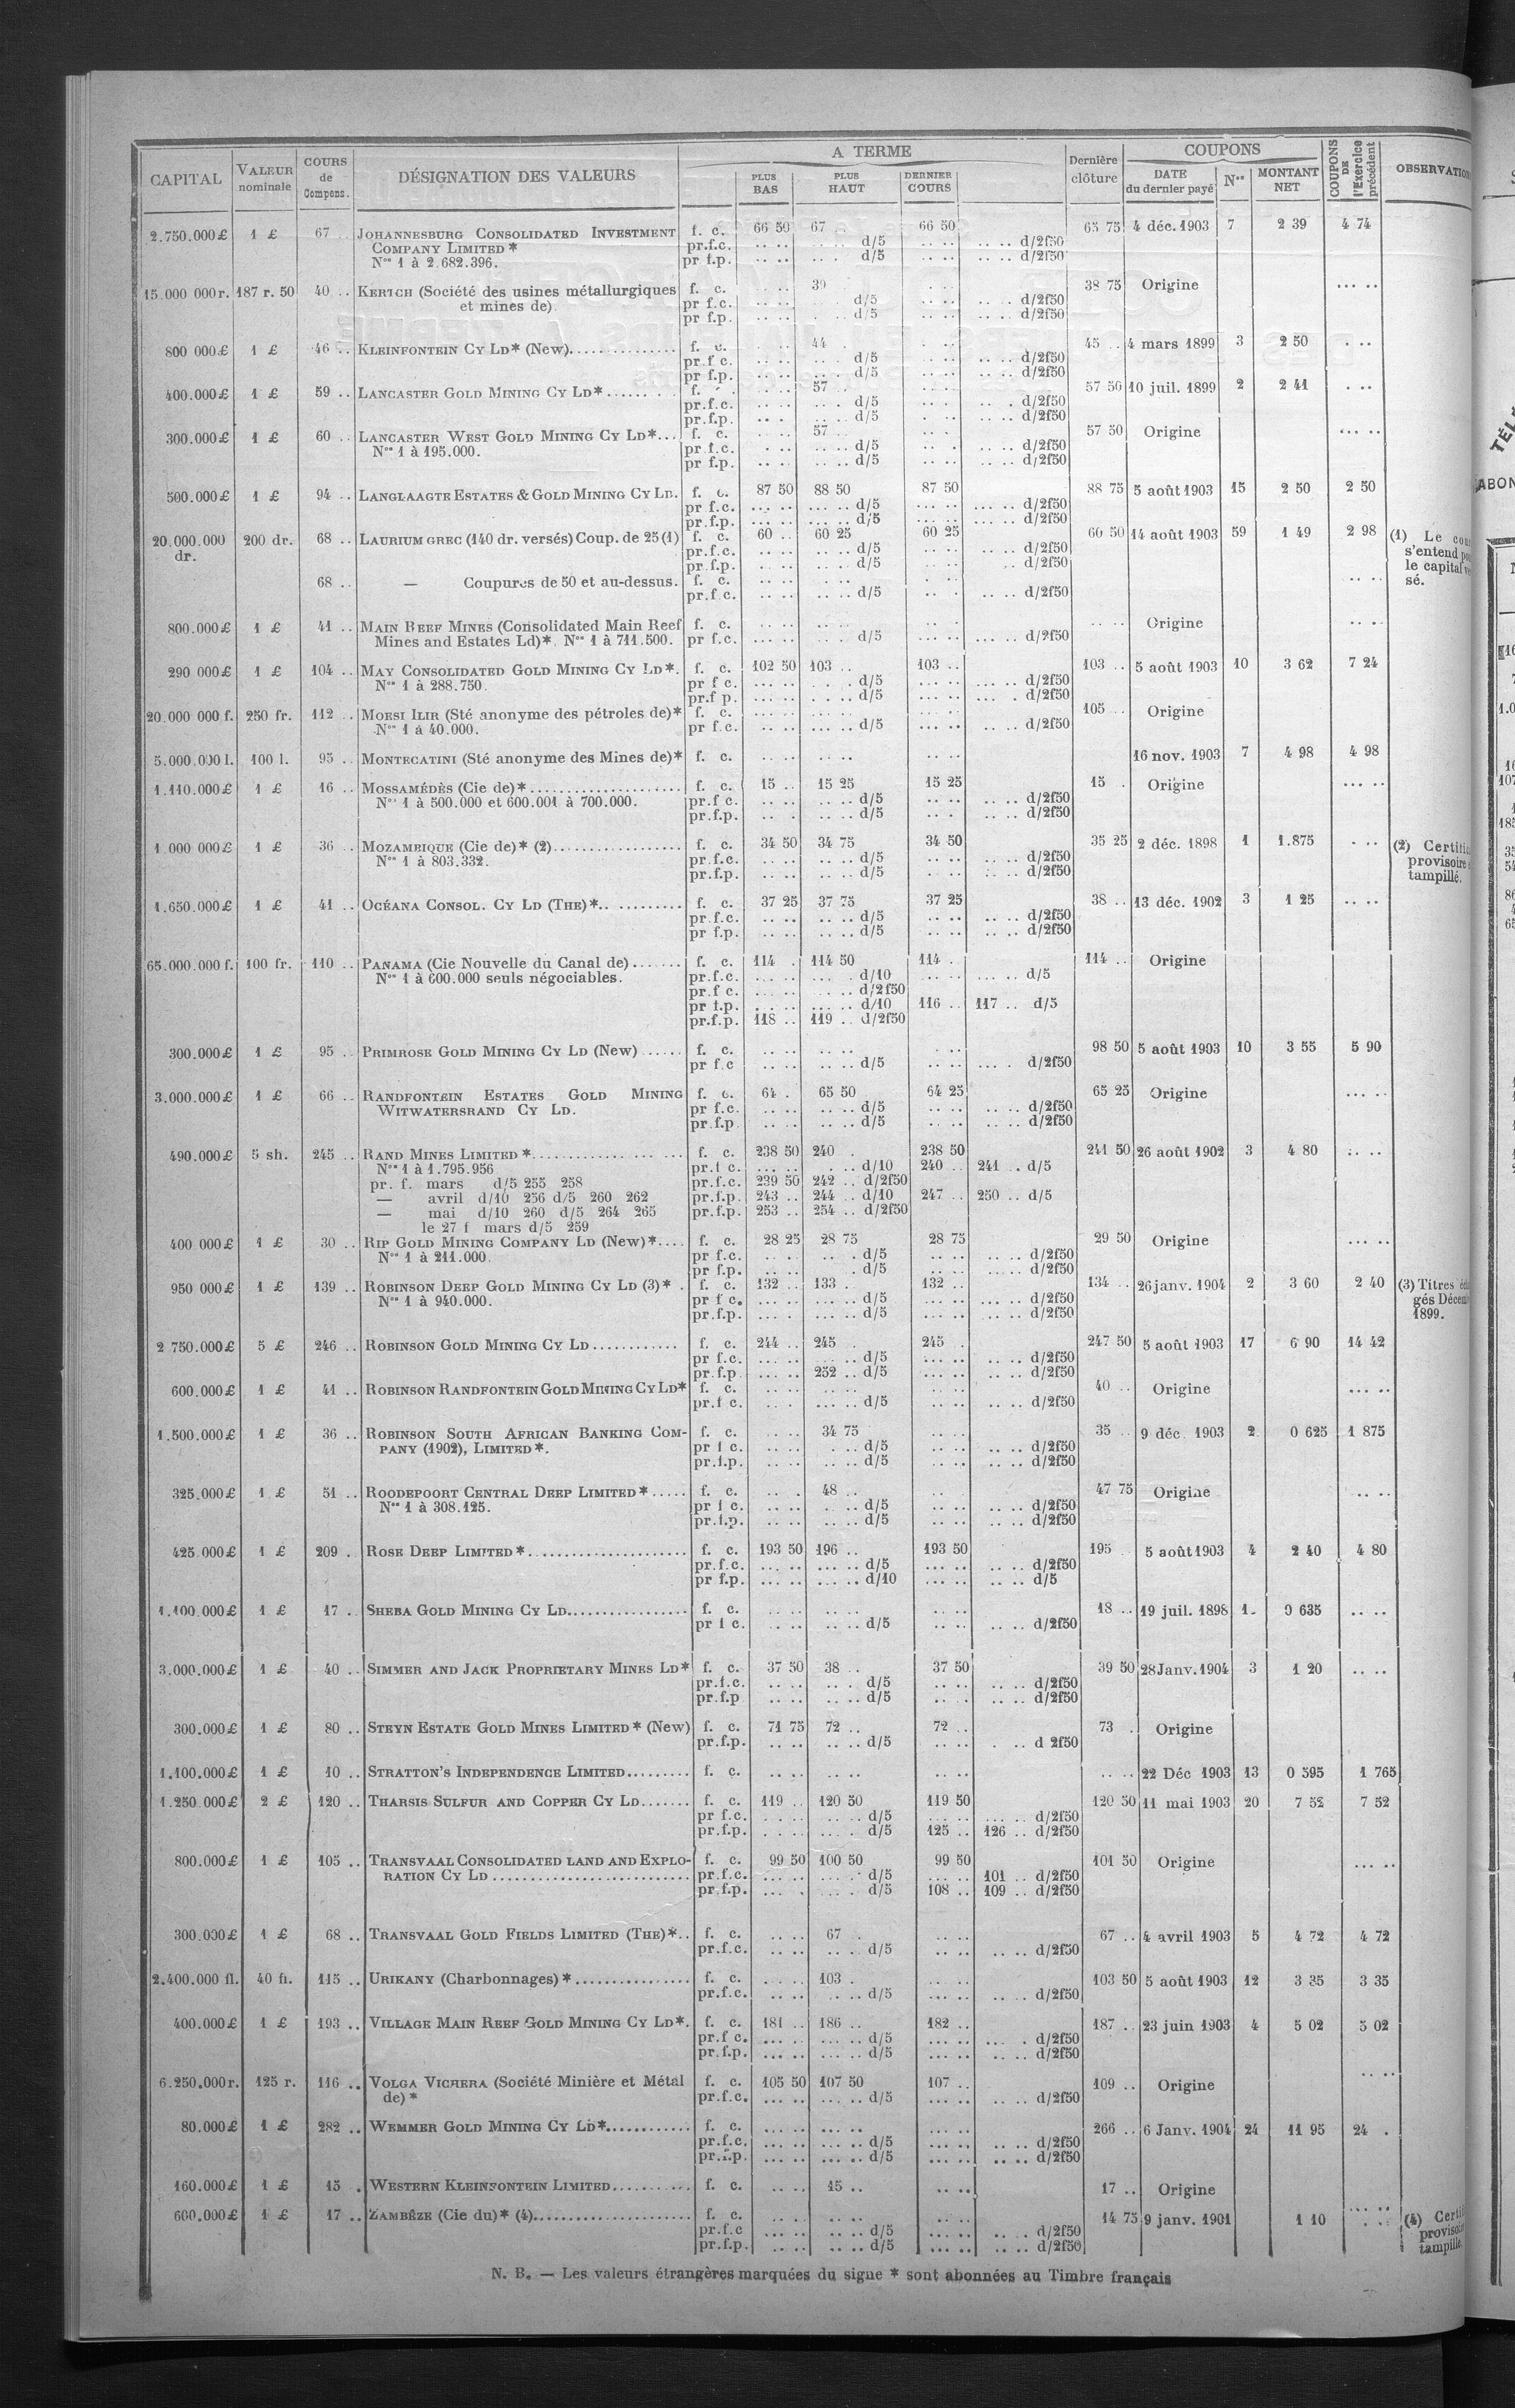 A TERME
COUPONS
CAPITAL VALEUR nominale COURS de Compens. DÉSIGNATION DES VALEURS PLUS BAS PLUS HAUT DERNIER COURS Dernière clôture DATE du dernier payé Nos MONTANT NET COUPONS DE l'Exercice précédent
2.750.000£ 1 £ 67 .. JOHANNESBURG CONSOLIDATED INVESTMENT f. c. 66 50 67 66 50 65 75 4 déc. 1903 7 2 39 4 74
COMPANY LIMITED * pr.f.c. .. .. d/5 .. .. d/2f50
Nos 1 à 2.682.396. pr f.p. .. .. d/5 .. .. d/2f50
15.000 000 r. 187 r. 50 40 .. KERTCH (Société des usines métallurgiques f. c. 39 38 75 Origine ... ..
et mines de). pr f.c. .. .. d/5 .. .. d/2f50
pr f.p. .. .. d/5 .. .. d/2f50
800 000£ 1 £ 46 .. KLEINFONTEIN CY LD* (New)............... f. c. 44 45 .. 4 mars 1899 3 2 50 . ..
pr.f c. .. .. d/5 .. .. d/2f50
pr f.p. .. .. d/5 .. .. d/2f50
400.000£ 1 £ 59 .. LANCASTER GOLD MINING CY LD*....... f. 57 57 50 10 juil. 1899 2 2 41 . ..
pr.f.c. .. .. d/5 .. .. d/2f50
pr.f.p. .. .. d/5 .. .. d/2f50
300.000£ 1 £ 60 .. LANCASTER WEST GOLD MINING CY LD*... f. c. 57 57 50 Origine ... ..
Nos 1 à 195.000. pr f.c. .. .. d/5 .. .. d/2f50
pr f.p. .. .. d/5 .. .. d/2f50
500.000£ 1 £ 94 .. LANGLAAGTE ESTATES & GOLD MINING CY LD. f. c. 87 50 88 50 87 50 88 75 5 août 1903 15 2 50 2 50
pr f.c. ... .. d/5 ... .. d/2f50
pr.f.p. ... .. d/5 ... .. d/2f50
20.000.000 dr. 200 dr. 68 .. LAURIUM GREC (140 dr. versés) Coup. de 25 (1) f. c. 60 .. 60 25 60 25 60 50 14 août 1903 59 1 49 2 98 (1) Le
pr.f.c. .. .. d/5 .. .. d/2f50 s'entend
pr.f.p. .. .. d/5 .. d/2f50 le capital
68 .. — Coupures de 50 et au-dessus. f. c. .. .. .. .. sé.
pr.f.c. .. .. d/5 .. .. d/2f50
800.000£ 1 £ 41 .. MAIN REEF MINES (Consolidated Main Reef f. c. Origine .. ..
Mines and Estates Ld)*. Nos 1 à 711.500. pr f.c. ... .. d/5 ... .. d/2f50
290 000£ 1 £ 104 .. MAY CONSOLIDATED GOLD MINING CY LD*. f. c. 102 50 103 .. 103 .. 103 .. 5 août 1903 10 3 62 7 24
Nos 1 à 288.750. pr f c. ... .. d/5 ... .. d/2f50
pr.f p. ... .. d/5 ... .. d/2f50
20.000 000 f. 250 fr. 112 .. MOESI ILIR (Sté anonyme des pétroles de)* f. c. 105 .. Origine
Nos 1 à 40.000. pr f.c. .. .. d/5 ... .. d/2f50
5.000.000 l. 100 l. 95 .. MONTECATINI (Sté anonyme des Mines de)* f. c. .. .. 16 nov. 1903 7 4 98 4 98
1.110.000£ 1 £ 16 .. MOSSAMÉDÈS (Cie de)*..................... f. c. 15 .. 15 25 15 25 15 . Origine ... ..
Nos 1 à 500.000 et 600.001 à 700.000. pr.f c. .. .. d/5 .. .. d/2f50
pr.f.p. .. .. d/5 .. .. d/2f50
1.000 000£ 1 £ 36 .. MOZAMBIQUE (Cie de)* (2).................. f. c. 34 50 34 75 34 50 35 25 2 déc. 1898 1 1.875 . .. (2)
Nos 1 à 803.332. pr.f.c. .. .. d/5 .. .. d/2f50 provisoire
pr.f.p. .. .. d/5 .. .. d/2f50 tampillé.
1.650.000£ 1 £ 41 .. OCÉANA CONSOL. CY LD (THE)*............ f. c. 37 25 37 75 37 25 38 .. 13 déc. 1902 3 1 25 .. ..
pr.f.c. .. .. d/5 .. .. d/2f50
pr f.p. .. .. d/5 .. .. d/2f50
65.000.000 f. 100 fr. 110 .. PANAMA (Cie Nouvelle du Canal de)....... f. c. 114 . 114 50 114 .. 114 .. Origine
Nos 1 à 600.000 seuls négociables. pr.f.c. ... .. d/10 ... .. d/5
pr.f c. ... .. d/2f50
pr f.p. ... .. d/10 116 .. 117 .. d/5
pr.f.p. 118 .. 119 .. d/2f50
300.000£ 1 £ 95 .. PRIMROSE GOLD MINING CY LD (New)...... f. c. .. .. 98 50 5 août 1903 10 3 55 5 90
pr f.c .. .. d/5 .. .. d/2f50
3.000.000£ 1 £ 66 .. RANDFONTEIN ESTATES GOLD MINING f. c. 64 . 65 50 64 25 65 25 Origine ... ..
WITWATERSRAND CY LD. pr f.c. .. .. d/5 .. .. d/2f50
pr.f.p. .. .. d/5 .. .. d/2f50
490.000£ 5 sh. 245 .. RAND MINES LIMITED *................... f. c. 238 50 240 . 238 50 241 50 26 août 1902 3 4 80 .. ..
Nos 1 à 1.795.956 pr.f c. ... .. d/10 240 .. 241 .. d/5
pr. f. mars d/5 255 258 pr.f.c. 239 50 242 .. d/2f50
— avril d/10 256 d/5 260 262 pr.f.p. 243 .. 244 .. d/10 247 .. 250 .. d/5
— mai d/10 260 d/5 264 265 pr.f.p. 253 .. 254 .. d/2f50
le 27 f mars d/5 259
400 000£ 1 £ 30 .. RIP GOLD MINING COMPANY LD (New)*.... f. c. 28 25 28 75 28 75 29 50 Origine ... ..
Nos 1 à 211.000. pr f.c. .. .. d/5 .. .. d/2f50
pr f.p. .. .. d/5 .. .. d/2f50
950 000£ 1 £ 139 .. ROBINSON DEEP GOLD MINING CY LD (3)* . f. c. 132 .. 133 . 132 .. 134 .. 26 janv. 1904 2 3 60 2 40 (3) Titres
Nos 1 à 940.000. pr f c. ... .. d/5 ... .. d/2f50 gés
pr.f.p. ... .. d/5 ... .. d/2f50 1899.
2 750.000£ 5 £ 246 .. ROBINSON GOLD MINING CY LD............ f. c. 244 .. 245 . 245 . 247 50 5 août 1903 17 6 90 14 42
pr f.c. ... .. d/5 ... .. d/2f50
pr.f.p. ... .. 252 .. d/5 ... .. d/2f50
600.000£ 1 £ 41 .. ROBINSON RANDFONTEIN GOLD MINING CY LD* f. c. 40 .. Origine ... ..
pr.f c. .. .. d/5 .. .. d/2f50
1.500.000£ 1 £ 36 .. ROBINSON SOUTH AFRICAN BANKING COM- f. c. 34 75 35 .. 9 déc. 1903 2 0 625 1 875
PANY (1902), LIMITED *. pr f c. .. .. d/5 .. .. d/2f50
pr.f.p. .. .. d/5 .. .. d/2f50
325.000£ 1 £ 51 .. ROODEPOORT CENTRAL DEEP LIMITED *..... f. c. 48 .. 47 75 Origine .. ..
Nos 1 à 308.125. pr f c. .. .. d/5 .. .. d/2f50
pr.f.p. .. .. d/5 .. .. d/2f50
425.000£ 1 £ 209 . ROSE DEEP LIMITED *...................... f. c. 193 50 196 .. 193 50 195 .. 5 août 1903 4 2 40 4 80
pr.f.c. ... .. d/5 ... .. d/2f50
pr f.p. ... .. d/10 ... .. d/5
1.100.000£ 1 £ 17 .. SHEBA GOLD MINING CY LD................. f. c. 18 .. 19 juil. 1898 1. 0 635 .. ..
pr f c. .. .. d/5 .. .. d/2f50
3.000.000£ 1 £ 40 .. SIMMER AND JACK PROPRIETARY MINES LD* f. c. 37 50 38 .. 37 50 39 50 28 Janv. 1904 3 1 20 .. ..
pr.f.c. .. .. d/5 .. .. d/2f50
pr.f.p .. .. d/5 .. .. d/2f50
300.000£ 1 £ 80 .. STEYN ESTATE GOLD MINES LIMITED * (New) f. c. 71 75 72 .. 72 .. 73 . Origine
pr.f.p. .. .. d/5 .. .. d 2f50
1.100.000£ 1 £ 10 .. STRATTON'S INDEPENDENCE LIMITED......... f. c. .. .. 22 Déc 1903 13 0 595 1 765
1.250 000£ 2 £ 120 .. THARSIS SULFUR AND COPPER CY LD....... f. c. 119 .. 120 50 119 50 120 50 11 mai 1903 20 7 52 7 52
pr f.c. ... .. d/5 ... .. d/2f50
pr.f.p. ... .. d/5 125 .. 126 .. d/2f50
800.000£ 1 £ 105 .. TRANSVAAL CONSOLIDATED LAND AND EXPLO- f. c. 99 50 100 50 99 50 101 50 Origine ... ..
RATION CY LD............................ pr.f.c. ... .. d/5 ... .. 101 .. d/2f50
pr.f.p. ... .. d/5 108 .. 109 .. d/2f50
300.000£ 1 £ 68 .. TRANSVAAL GOLD FIELDS LIMITED (THE)*.. f. c. 67 . 67 .. 4 avril 1903 5 4 72 4 72
pr.f.c. .. .. d/5 .. .. d/2f50
2.400.000 fl. 40 fl. 115 .. URIKANY (Charbonnages)*................ f. c. 103 . 103 50 5 août 1903 12 3 35 3 35
pr.f.c. .. .. d/5 ... .. d/2f50
400.000£ 1 £ 193 .. VILLAGE MAIN REEF GOLD MINING CY LD*. f. c. 181 .. 186 .. 182 .. 187 .. 23 juin 1903 4 5 02 5 02
pr.f c. ... .. d/5 ... .. d/2f50
pr.f.p. ... .. d/5 ... .. d/2f50
6.250.000 r. 125 r. 116 .. VOLGA VICHERA (Société Minière et Métal f. c. 105 50 107 50 107 .. 109 .. Origine .. ..
de) * pr.f.c. ... .. d/5 ... .. d/2f50
80.000£ 1 £ 282 .. WEMMER GOLD MINING CY LD*............ f. c. 266 .. 6 Janv. 1904 24 11 95 24 .
pr.f.c. ... .. d/5 ... .. d/2f50
pr.f.p. ... .. d/5 ... .. d/2f50
160.000£ 1 £ 15 . WESTERN KLEINFONTEIN LIMITED........... f. c. 15 .. 17 .. Origine
600.000£ 1 £ 17 .. ZAMBÈZE (Cie du)* (4)...................... f. c. 14 75 9 janv. 1901 1 10 .. .. (4)
pr.f.c ... .. d/5 ... .. d/2f50
pr.f.p. ... .. d/5 ... .. d/2f50 tampillé.
N. B. — Les valeurs étrangères marquées du signe * sont abonnées au Timbre français